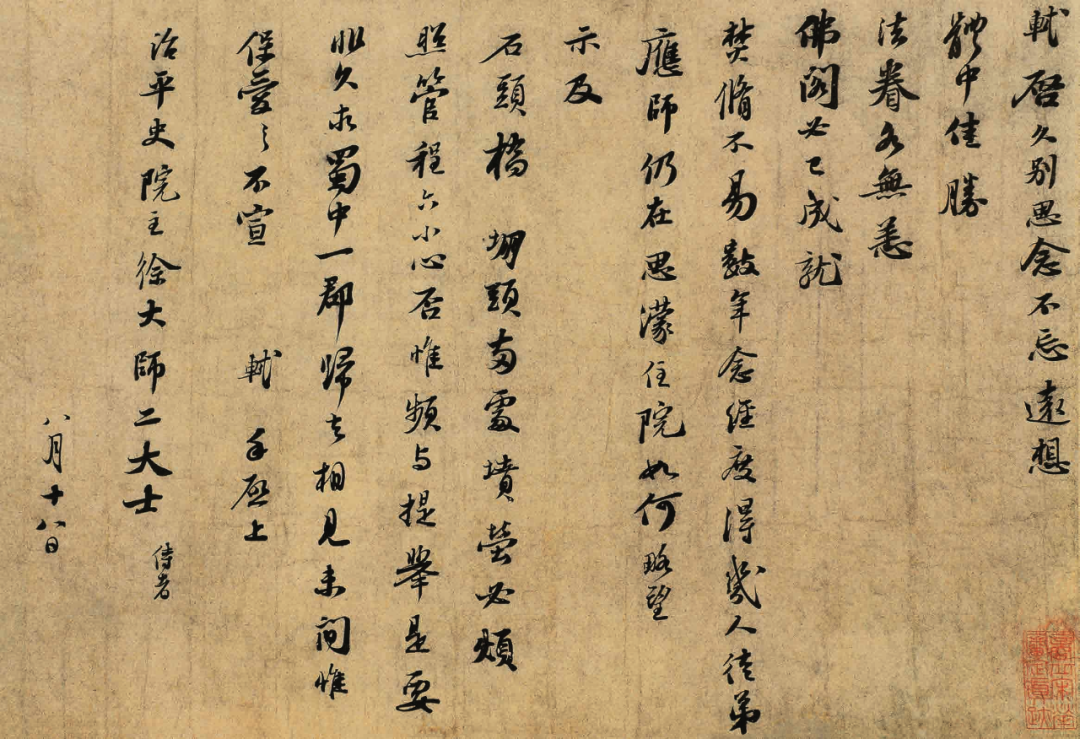 軾啓久別思念不忘遠想
體中佳勝
法眷各無恙
佛閣必已成就
焚脩不易數年念經度得幾人徒弟
應師仍在思濛住院如何略望
示及
石頭橋堋頭兩處墳塋必煩
照管程六小心否惟頻與提舉是要
非久求蜀中一郡歸去相見未間惟
保愛之不宣 軾手啓上
治平史院主徐大師二大士 侍者
八月十八日